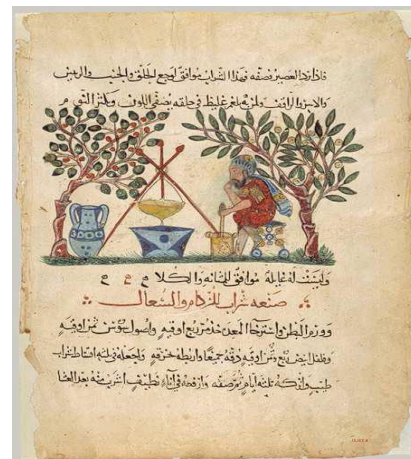 فاذا زد العصير نصفه فهذا الشراب موافق لوجع الحلق والجنب والرئتين
والاسترخا ولمن به بلغم غليظ في حلقه يصفي اللون ويكثر النوم
وليست له غايلة موافق للمثانة والكلا
صنعه شراب للزكام والسعال
وورم البطن واسترخا المعدة خذ مر ربع اوقيه واصول سوس ثمن اوقيه
وفلفل ابيض ربع وثمن اوقيه ودقه جميعا واربطه في خرقه واجعله في ثلثه اقساط شراب
طيب واتركه ثلثه ايام ثم صفه وارفعه في اناء نظيف اشرب منه بعد العشا